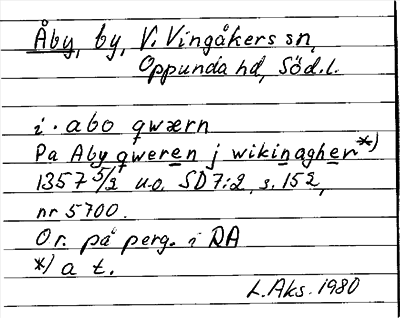 Åby, by, V. Vingåkers sn,
Oppunda hd, Söd.l.
i · abo qwærn
Pa Aby qweren j wikinagher*)
1357 5/2 u.o. SD 7:2, s. 152,
nr 5700.
Or. på perg. i RA
*) a t.
L. Aks. 1980